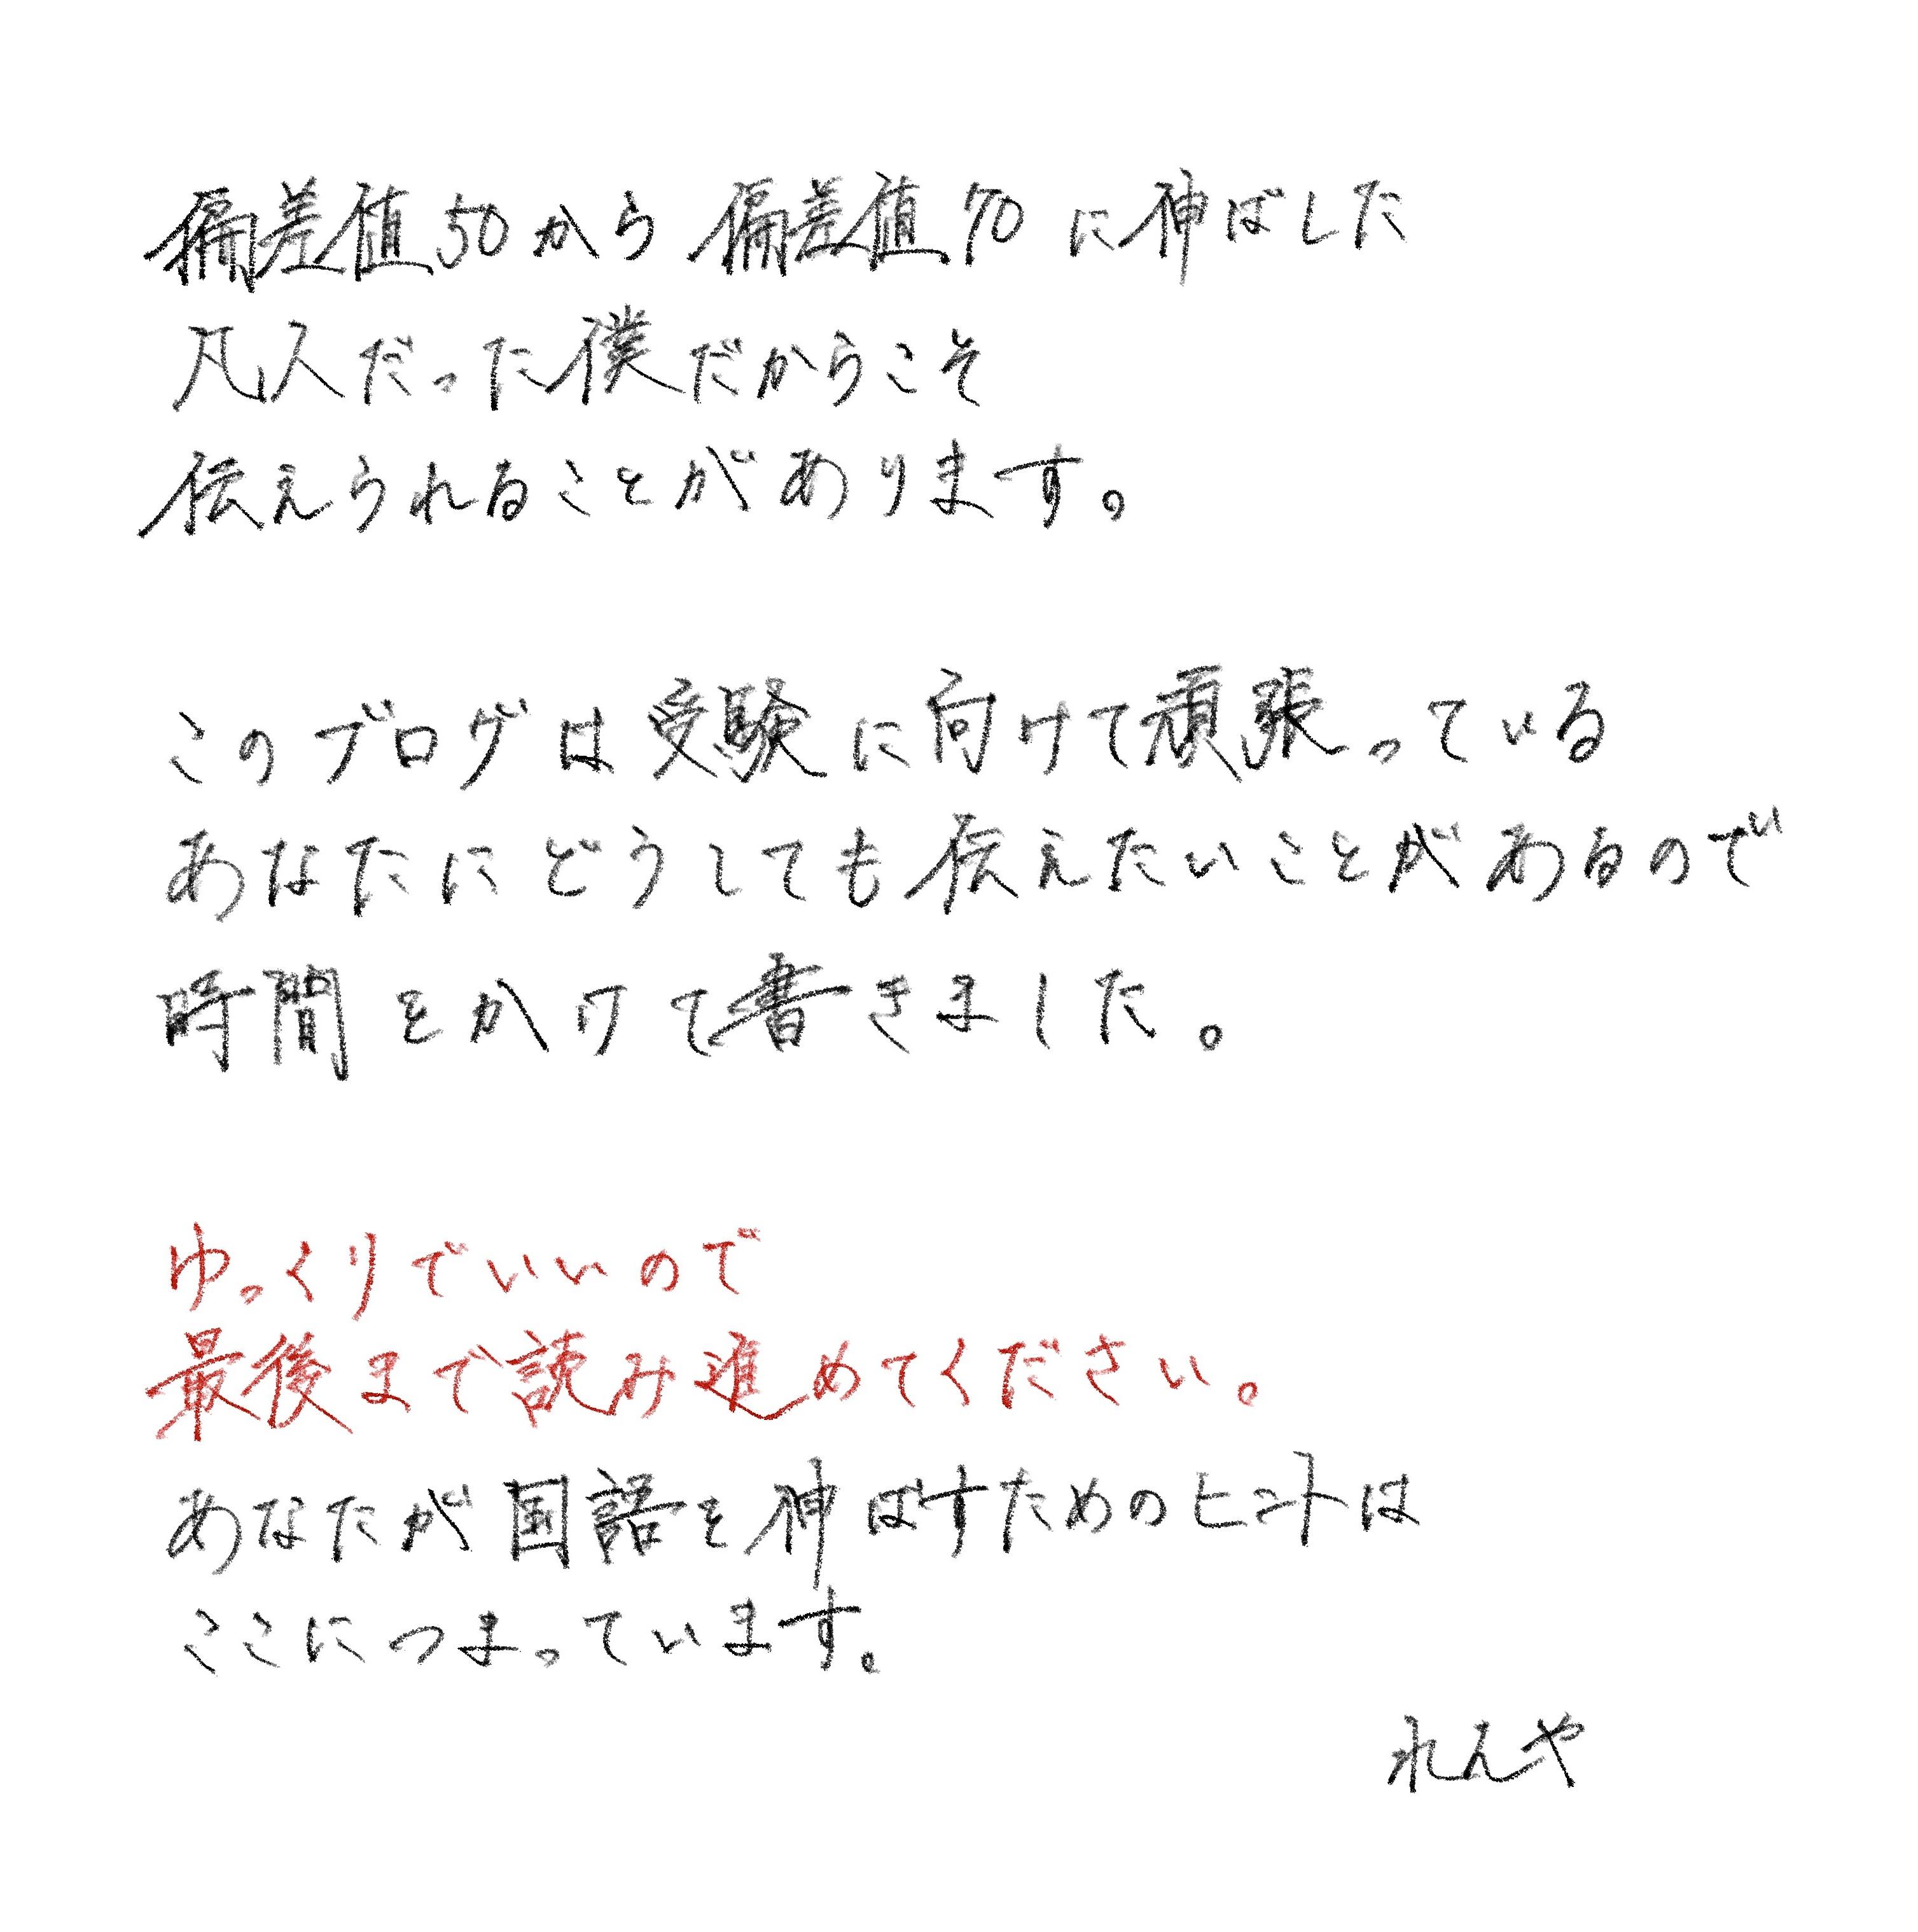 偏差値50から偏差値70に伸ばした
凡人だった僕だからこそ
伝えられることがあります。
このブログは受験に向けて頑張っている
あなたにどうしても伝えたいことがあるので
時間をかけて書きました。
ゆっくりでいいので
最後まで読み進めてください。
あなたが国語を伸ばすためのヒントは
ここにつまっています。
れんや